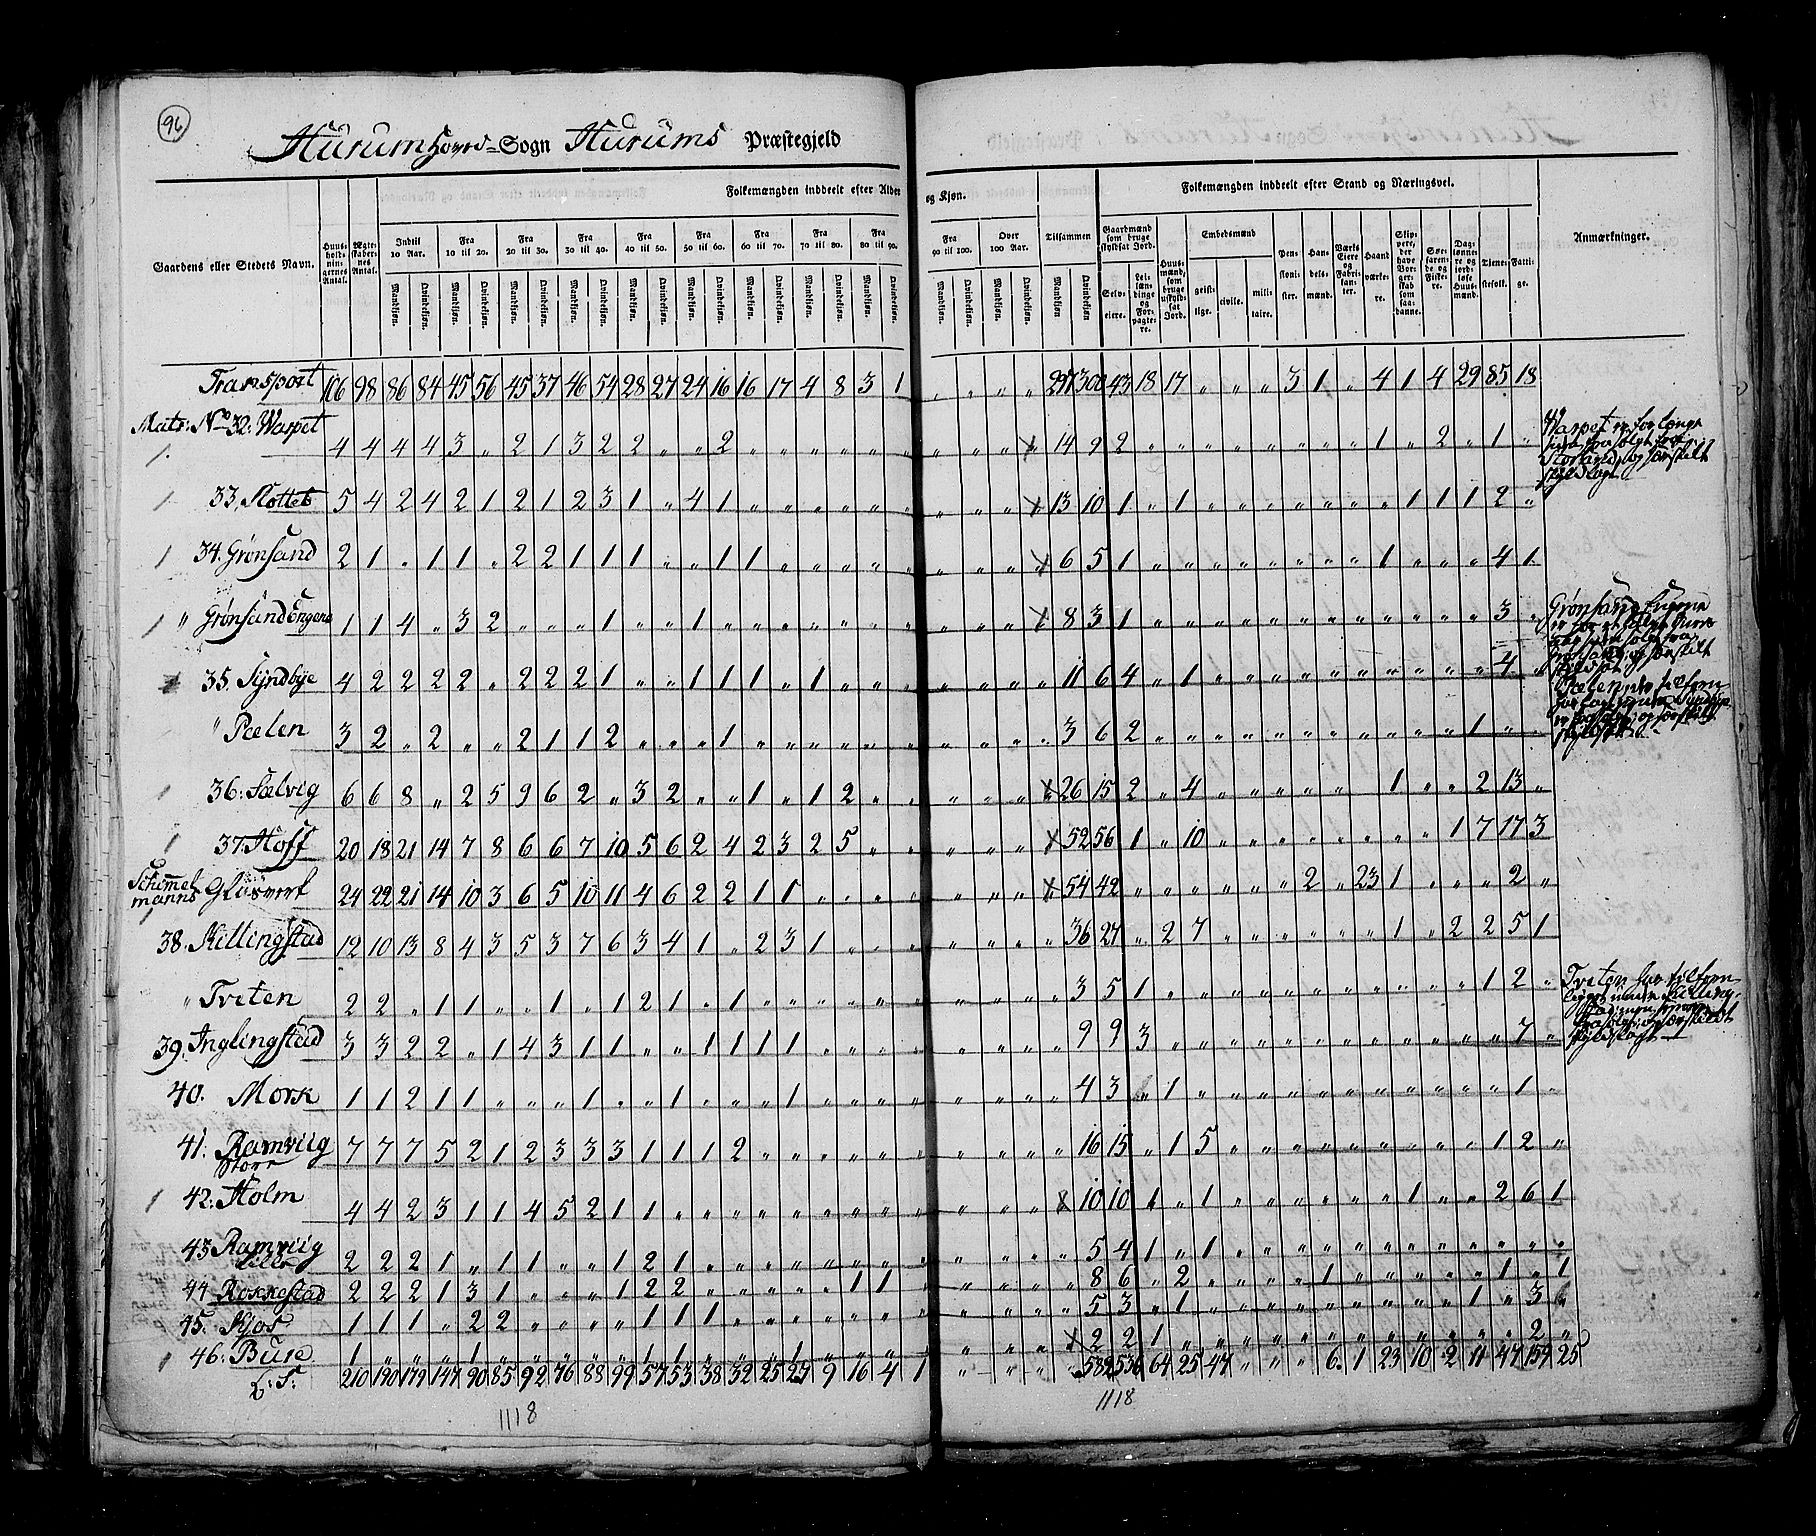 96
Hurum Hoved-Sogn Hurums Præstegjeld
Gaardens eller Stedets Navn.
Huus-holdnin-gernes Antal.
Ægte-skaber-nes Antal.
Folkemængden inddeelt efter Alder og Kjøn.
Indtil 10 Aar.
Fra 10 til 20.
Fra 20 til 30.
Fra 30 til 40.
Fra 40 til 50.
Fra 50 til 60.
Fra 60 til 70.
Fra 70 til 80.
Fra 80 til 90.
Fra 90 til 100.
Over 100 Aar.
Mandkjøn. Qvindekjøn.
Tilsammen
Folkemængden inddeelt efter Stand og Næringsvei.
Gaardmænd som bruge skyldsat Jord.
Selv-eiere.
Lei-læn-dinge og For-pagte-re.
Huus-mænd, som bruge uskyld-sat Jord.
Embedsmænd
geist-lige.
civile.
mili-taire.
Pen-sioni-ster.
Han-dels-mænd.
Værks Eiere og Fabri-kan-ter.
Haand værke-re.
Skip-pere, der have Bor-ger-skab som saa-danne.
Søe-farende og Fiske-re.
Dag-lønne-re og jord-løse Huus-mænd.
Tjene-stefolk.
Fatti-ge.
Anmærkninger.
Transport 106 98 86 84 45 56 45 37 46 54 28 27 24 16 16 17 4 8 3 1 " " " " 297 300 43 18 17 " " " 3 1 " 4 1 4 29 85 18
Matr: No 32: Warpet 4 4 4 4 3 " 2 1 3 2 2 " " 2 14 9 2 1 " 2 " 1 "
33. Kottes 5 4 2 4 2 1 2 1 2 3 1 " 4 1 13 10 1 " 1 1 1 1 2 "
34. Grönsand 2 1 " 1 1 " 2 2 1 1 1 " " 1 1 6 5 1 1 " " " 4 1
" Grönsand Engene 1 1 4 " 3 2 " " " 1 " " 1 8 3 1 3 "
35. Syndbye 4 2 2 2 2 " 2 2 2 1 " " 1 1 1 " 1 11 6 4 " 1 4 "
" Pælen 3 2 " 2 " " 2 1 1 2 " " " 1 3 6 2 1 " "
36: Sælvig 6 6 8 " 2 5 9 6 2 " 3 2 " " 1 " 1 2 26 15 2 " 4 1 " " 2 13 "
37. Hoff 20 18 21 14 7 8 6 6 7 10 5 6 2 4 2 3 2 5 52 56 1 " 10 1 7 17 3
Schimmelmanns Glasværk 24 22 21 14 10 3 6 5 10 11 4 6 2 2 1 1 54 42 2 " 23 1 " " " 2 "
38. Killingstad 12 10 13 8 4 3 5 3 7 6 3 4 1 " 2 3 1 36 27 " 2 7 1 " 2 2 5 1
" Tveten 2 2 " 1 1 " " 1 " 1 2 1 " 1 3 5 1 1 2 "
39. Inglingstad 3 3 2 2 " 1 4 3 1 1 " " 1 1 1 1 9 9 3 7 "
40. Mork 1 1 2 1 1 " " " 1 " " 1 " " " 1 4 3 " 1 1 "
41. Ramviig Store 7 7 7 5 2 1 2 3 3 3 1 1 1 2 16 15 " 1 5 1 2 "
42: Holm 4 4 2 3 1 1 4 5 2 1 1 10 10 1 " 1 1 " " 2 6 1
43 Ramviig Lille 2 2 2 1 " 1 1 " " 1 2 1 5 4 1 " 1
44 Rokkestad 2 2 2 1 3 1 " " " 1 2 2 " " " " " 1 1 8 6 " 2 " " " " 1 1 " 1
45. Kjos 1 1 1 " 2 2 " " " " 1 1 1 5 3 " 1 1 " 3
46. Bure 1 " " " 1 " " " " " 1 1 " 1 " 2 2 1 2 "
L: S: 210 190 179 147 90 85 92 76 88 99 57 53 38 32 25 27 9 16 4 1 " " " " 582 536 64 25 47 " " " 6 1 23 10 2 11 47 159 25
Warpet er for længe siden frasolgt fra Storsand, og særskilt skyldlagt.
Grönsand Engene
særskilt
Tveten har tilforn ligget under Killingstad, men er nu frasolgt, og særskildt skyldlagt
1118
1118